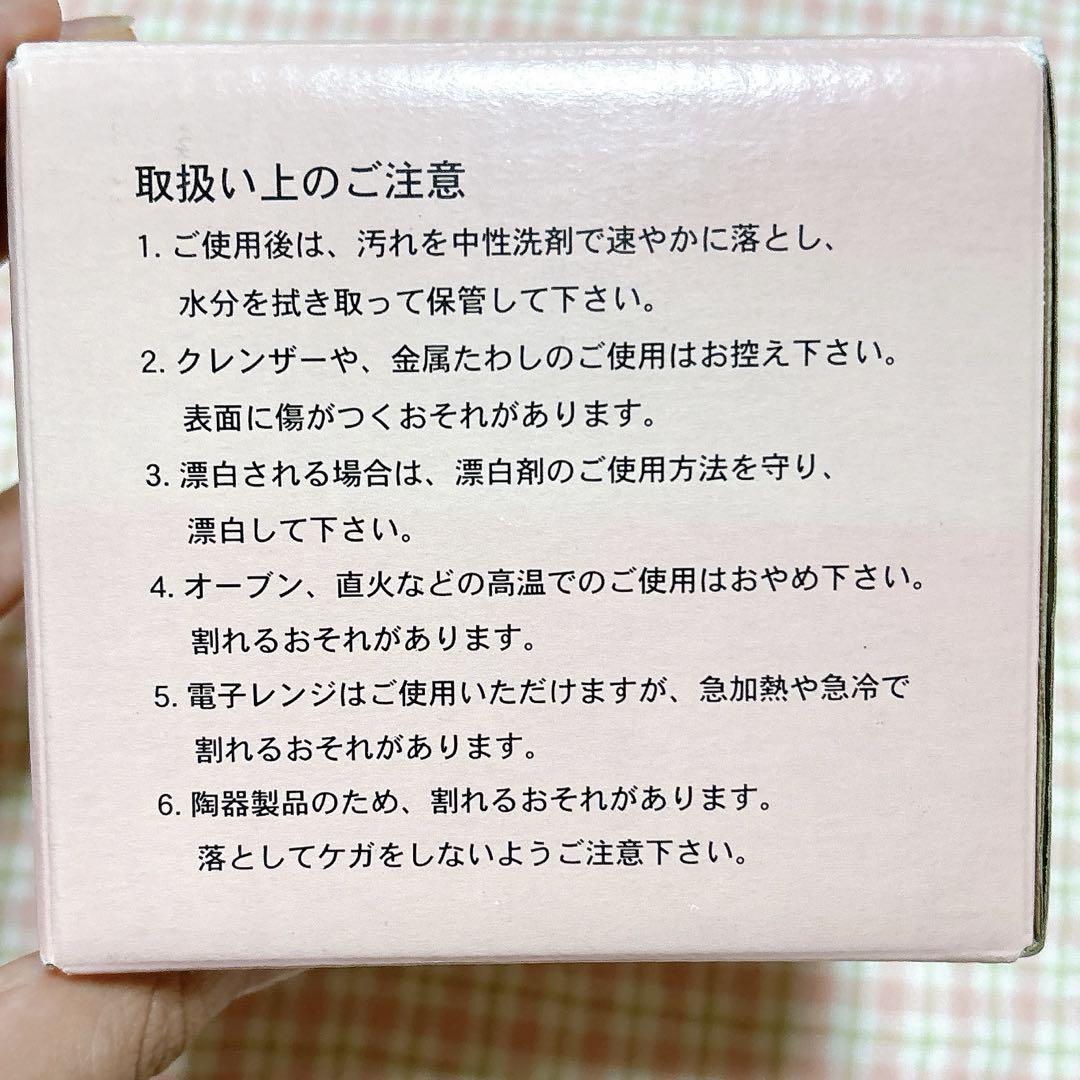 取扱い上のご注意
1. ご使用後は、汚れを中性洗剤で速やかに落とし、
水分を拭き取って保管して下さい。
2. クレンザーや、金属たわしのご使用はお控え下さい。
表面に傷がつくおそれがあります。
3. 漂白される場合は、漂白剤のご使用方法を守り、
漂白して下さい。
4. オーブン、直火などの高温でのご使用はおやめ下さい。
割れるおそれがあります。
5. 電子レンジはご使用いただけますが、急加熱や急冷で
割れるおそれがあります。
6. 陶器製品のため、割れるおそれがあります。
落としてケガをしないようご注意下さい。